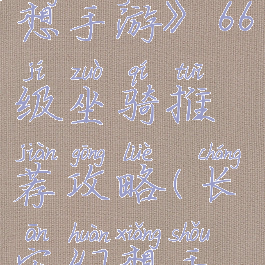 想手游》66
jí zuò qí tuī
级坐骑推
jiàn gōng lüè cháng
荐攻略(长
ān huàn xiǎng shǒu
安幻想手